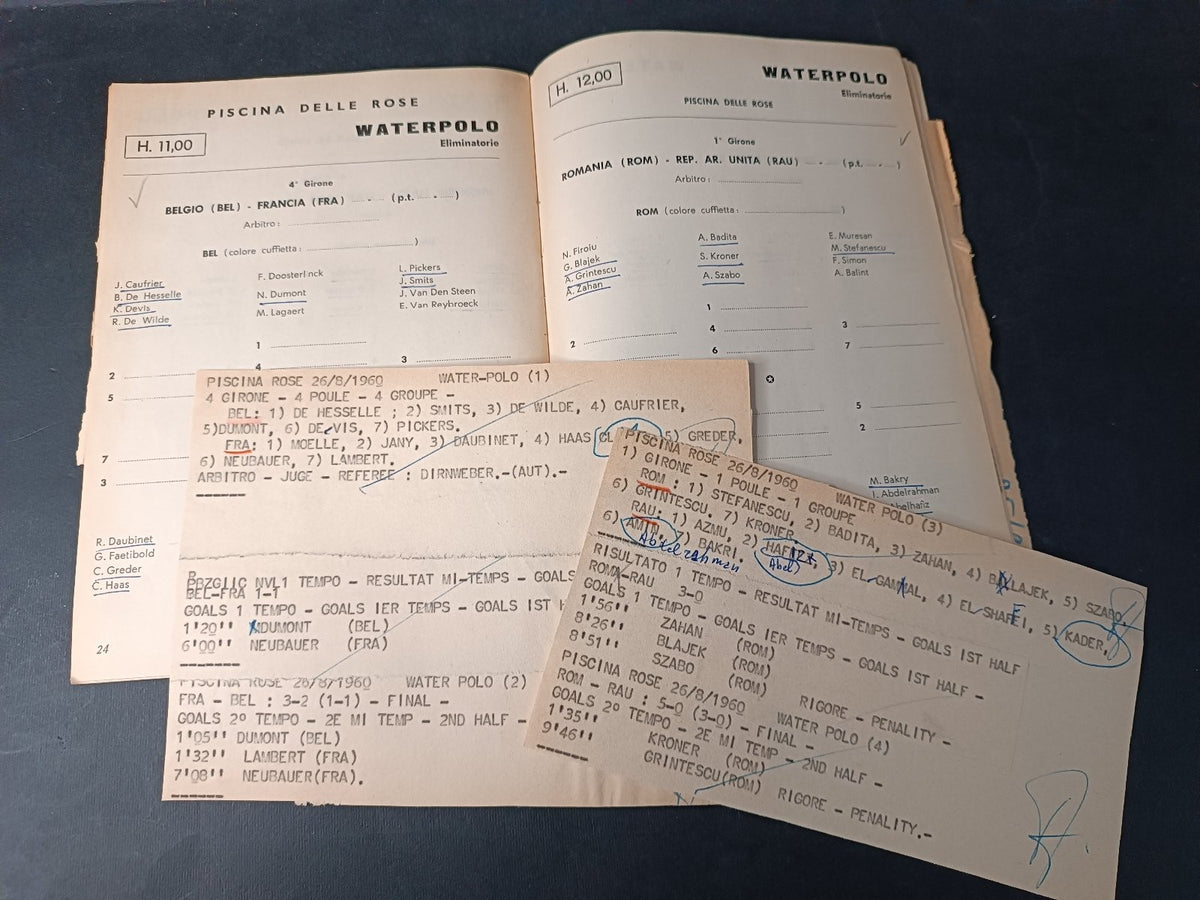 PISCINA DELLE ROSE
H. 11,00
WATERPOLO
Eliminatorie
4° Girone
BELGIO (BEL) - FRANCIA (FRA) ---- - ---- (p.t. ---- - ---- )
Arbitro :
BEL (colore cuffietta : )
J. Caufrier
B. De Hesselle
K. Devis
R. De Wilde
F. Doosterlinck
N. Dumont
M. Lagaert
L. Pickers
J. Smits
J. Van Den Steen
E. Van Reybroeck
1
2
3
4
5
7
3
R. Daubinet
G. Faetibold
C. Greder
C. Haas
24
H. 12,00
WATERPOLO
Eliminatorie
PISCINA DELLE ROSE
1° Girone
ROMANIA (ROM) - REP. AR. UNITA (RAU) ---- - ---- (p.t. ---- - ---- )
Arbitro :
ROM (colore cuffietta : )
N. Firoiu
G. Blajek
A. Grintescu
A. Zahan
A. Badita
S. Kroner
A. Szabo
E. Muresan
M. Stefanescu
F. Simon
A. Balint
1
2
3
4
6
7
5
2
M. Bakry
I. Abdelrahman
Abelhafiz
PISCINA ROSE 26/8/1960 WATER-POLO (1)
4 GIRONE - 4 POULE - 4 GROUPE -
BEL: 1) DE HESSELLE ; 2) SMITS, 3) DE WILDE, 4) CAUFRIER,
5)DUMONT, 6) DEVIS, 7) PICKERS.
FRA: 1) MOELLE, 2) JANY, 3) DAUBINET, 4) HAAS CL 5) GREDER,
6) NEUBAUER, 7) LAMBERT.
ARBITRO - JUGE - REFEREE : DIRNWEBER.-(AUT).-
1 TEMPO - RESULTAT MI-TEMPS - GOALS
BEL-FRA 1-1
GOALS 1 TEMPO - GOALS IER TEMPS - GOALS IST H
1'20'' DUMONT (BEL)
6'00'' NEUBAUER (FRA)
PISCINA ROSE 26/8/1960 WATER POLO (2)
FRA - BEL : 3-2 (1-1) - FINAL -
GOALS 2º TEMPO - 2E MI TEMP - 2ND HALF -
1'05'' DUMONT (BEL)
1'32'' LAMBERT (FRA)
7'08'' NEUBAUER(FRA).
PISCINA ROSE 26/8/1960 WATER POLO (3)
1) GIRONE - 1 POULE - 1 GROUPE
ROM : 1) STEFANESCU, 2) BADITA, 3) ZAHAN, 4) BLAJEK, 5) SZABO,
6) GRINTESCU. 7) KRONER.
RAU: 1) AZMU, 2) HAFIZ, 3) EL-GAMAL, 4) EL SHAFEI, 5) KADER,
6) AMIN, 7) BAKRI.
Abdelrahman
Abel
RISULTATO 1 TEMPO - RESULTAT MI-TEMPS - GOALS IST HALF
ROM-RAU 3-0
GOALS 1 TEMPO - GOALS IER TEMPS - GOALS IST HALF -
1'56'' ZAHAN (ROM)
8'26'' BLAJEK (ROM)
8'51'' SZABO (ROM) RIGORE - PENALITY -
PISCINA ROSE 26/8/1960 WATER POLO (4)
ROM - RAU : 5-0 (3-0) - FINAL -
GOALS 2º TEMPO - 2E MI TEMP - 2ND HALF -
1'35'' KRONER (ROM)
9'46'' GRINTESCU(ROM) RIGORE - PENALITY.-